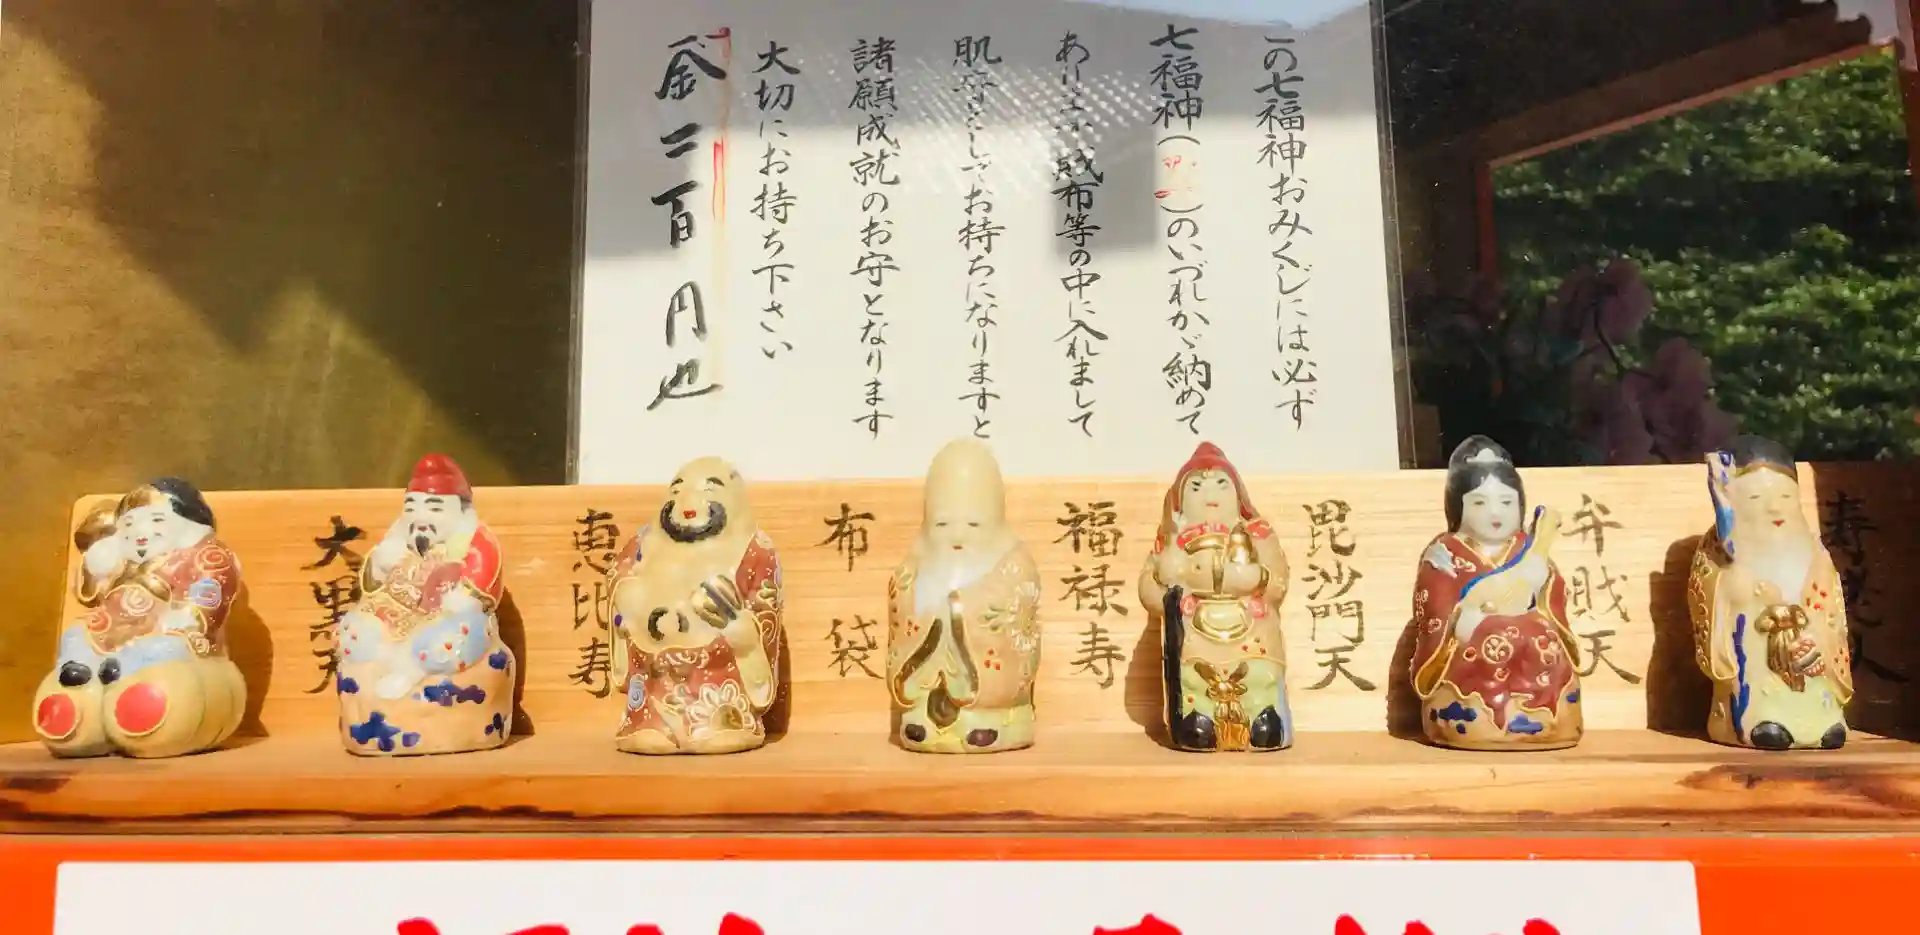 この七福神おみくじには必ず
七福神()のいづれかゞ納めて
ありますか財布等の中に入れまして
肌守としてお持ちになりますと
諸願成就のお守となります
大切にお持ち下さい
金二百円也
大黒天
恵比寿
布袋
福禄寿
毘沙門天
弁財天